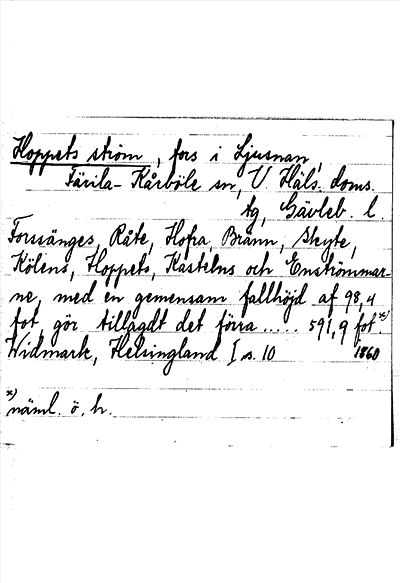 Hoppets ström, fors i Ljusnan,
Färila-Kårböle sn, V. Häls. doms.
tg, Gävleb. l.
Forssänges, Råte, Hofra, Brann, Skyte,
Kölens, Hoppets, Kastelns och Enströmmar-
ne, med en gemensam fallhöjd af 98,4
fot, gör tillagdt det förra ..... 591,9 fot.x)
Widmark, Helsingland I, s. 10 1860
x)
näml. ö. h.